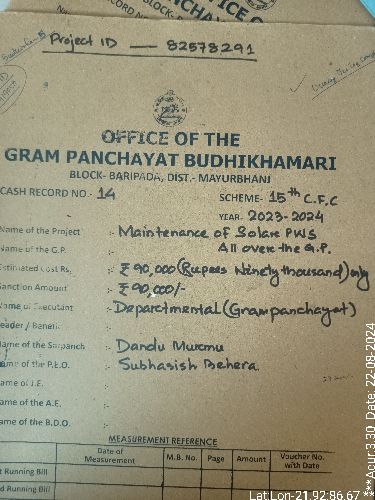 OFFICE O
RECORD NO.
BLOCK-
Project ID — 82578291
OFFICE OF THE
GRAM PANCHAYAT BUDHIKHAMARI
BLOCK- BARIPADA, DIST.- MAYURBHANJ
CASH RECORD NO.- 14
SCHEME- 15th C.F.C
YEAR- 2023-2024
Name of the Project :- Maintenance of Solar PWS
All over the G.P.
Name of the G.P. :-
Estimated Cost Rs. :- ₹ 90,000 (Rupees Ninety thousand) only
Sanction Amount :- ₹ 90,000/-
Name of Executant :- Departmental (Grampanchayat)
Leader / Benefi. :-
Name of the Sarpanch :- Dandu Murmu
Name of the P.E.O. :- Subhasish Behera
Name of J.E. :-
Name of the A.E. :-
Name of the B.D.O. :-
MEASUREMENT REFERENCE
Date of Measurement M.B. No. Page Amount Voucher No. with Date
t Running Bill
d Running Bill
Lat,Lon-21.92:86.67 ***Acur:3.30 Date: 22-08-2024